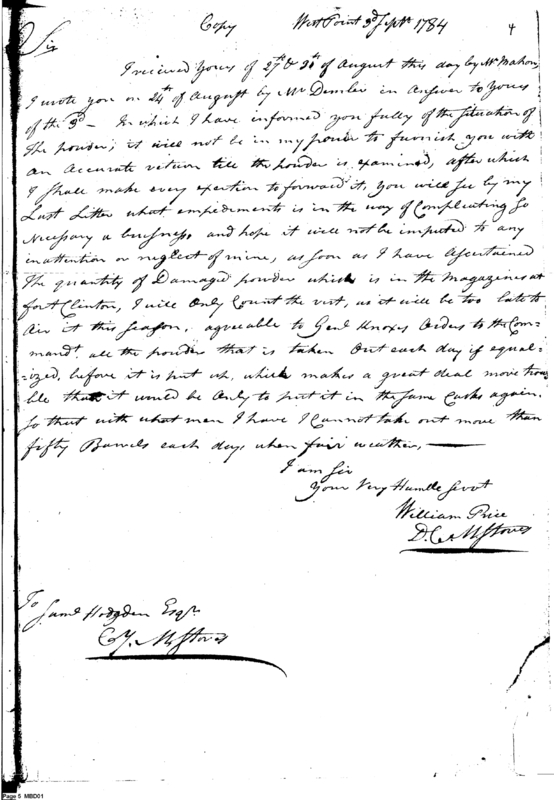 Copy West Point 3d Septr 1784 4
Sir
I received yours of 27th & 31st of August this day by Mr Mahon,
I wrote you on 24th of August by Mr Demler in answer to yours
of the 3d – In which I have informed you fully of the situation of
the powder; it will not be in my power to furnish you with
an Accurate return till the powder is examined, after which
I shall make every exertion to forward it, you will see by my
Last Letter what empediments is in the way of Compleating so
Necessary a business, and hope it will not be imputed to any
inattention or neglect of mine, as soon as I have Ascertained
the quantity of Damaged powder which is in the Magazines at
fort Clinton, I will Only Count the rest, as it will be too late to
Air it this season, agreeable to Genl Knoxes Orders to the Com-
mandt all the powder that is taken Out each day is equal-
-ized, before it is put up, which makes a great deal more trou
ble than it would be Only to put it in the same Casks again.
So that with what men I have I Cannot take out more than
fifty Barrels each day, when fair weather, —
I am Sir
Your Very Humble Servt
William Price
D.C. M Stores
To
Saml Hodgdon Esqr
C M Stores
Page 5 MBD01